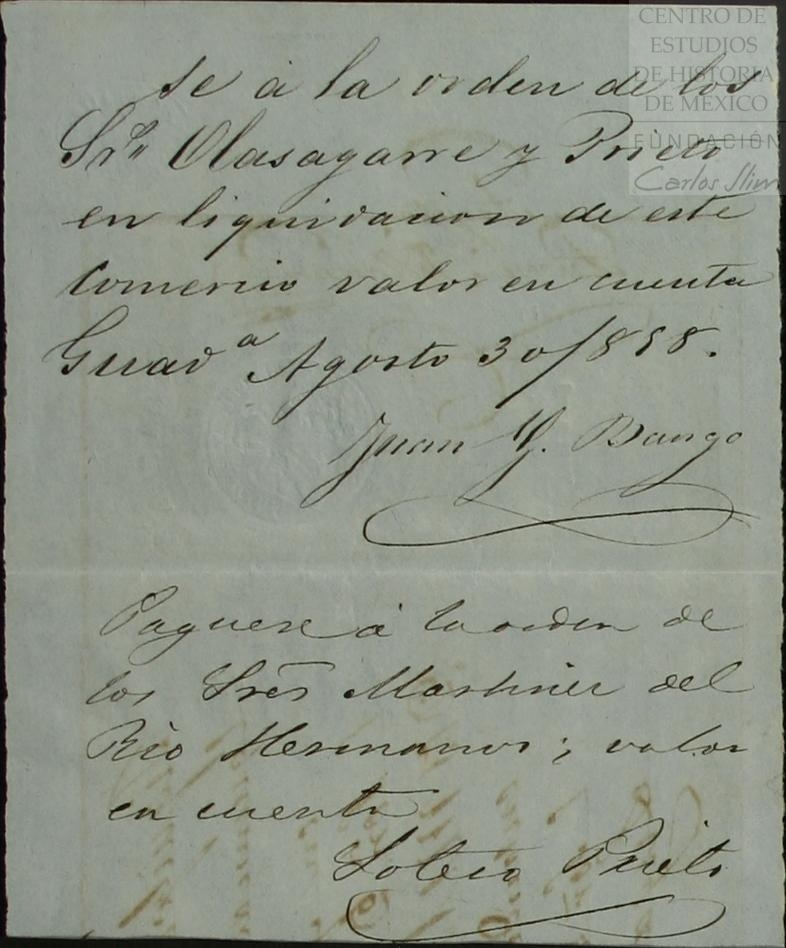 CENTRO DE
ESTUDIOS
DE HISTORIA
DE MÉXICO
FUNDACIÓN
Carlos Slim
se á la orden de los
Sres Olasagarre y Prieto
en liquidacion de este
comercio valor en cuenta
Guada Agosto 30/858.
Juan Y.
Paguese á la orden de
los Sres Martinez del
Rio Hermanos; valor
en cuenta
Sotero Prieto